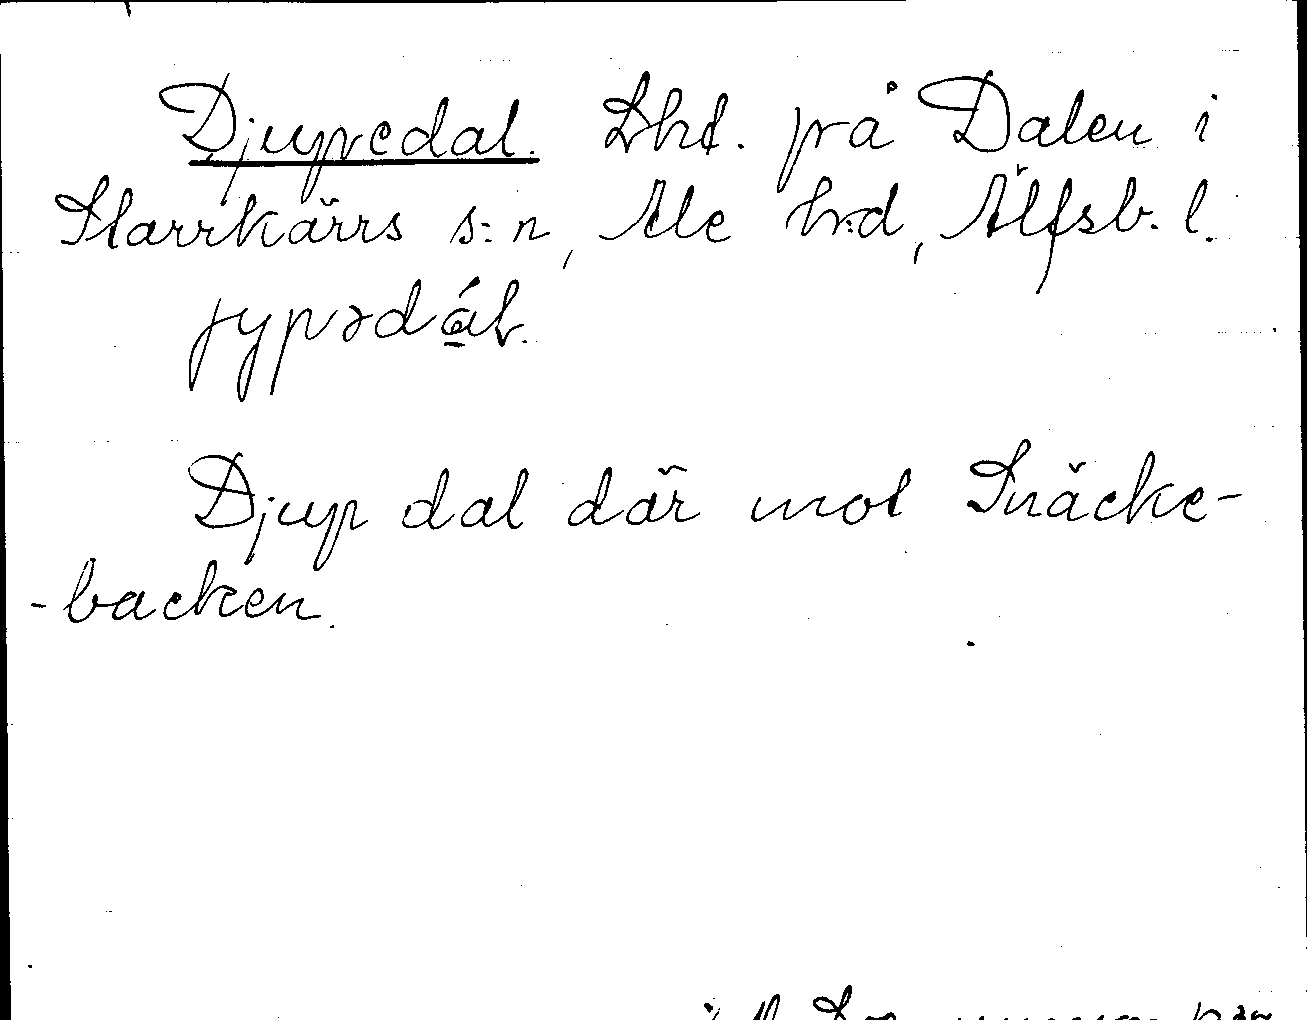 Djupedal. Lht. på Dalen i
Starrkärrs s:n, Ale h:d, Älfsb. l.
jypədál.
Djup dal där mot Snäcke-
-backen.